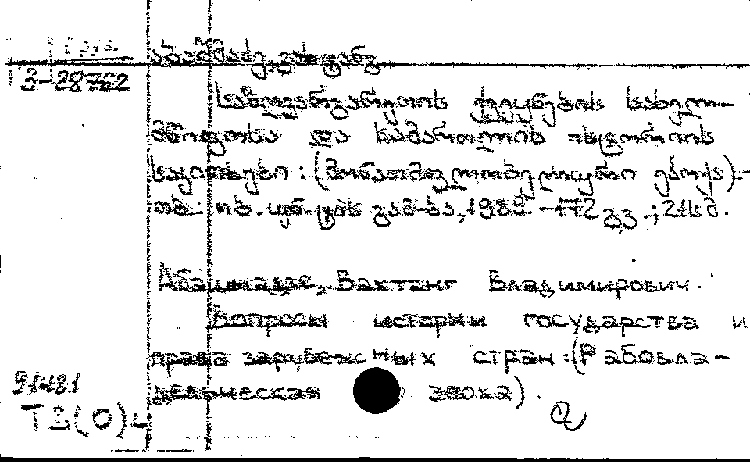 აბაშმაძე, ვახტანგ
Т3-28722
საზღვარგარეთის ქვეყნების სახელ-
მწიფოსა და სამართლის ისტორიის
საკითხები : (მონათმფლობელური ეპოქა).-
თბ. : თბ. უნ-ტის გამ-ბა, 1989 -172 გვ. ; 21სმ.
Абашмадзе, Вахтанг Владимирович.
Вопросы истории государства и
права зарубежных стран :(Рабовла-
дельческая эпоха).
91481
Т3(0)